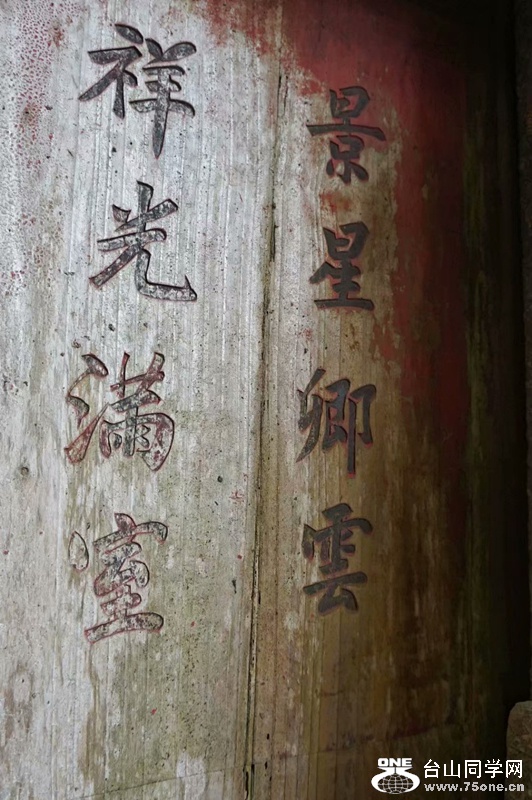 景星卿雲
祥光滿室
ONE 台山同学网
www.75one.cn